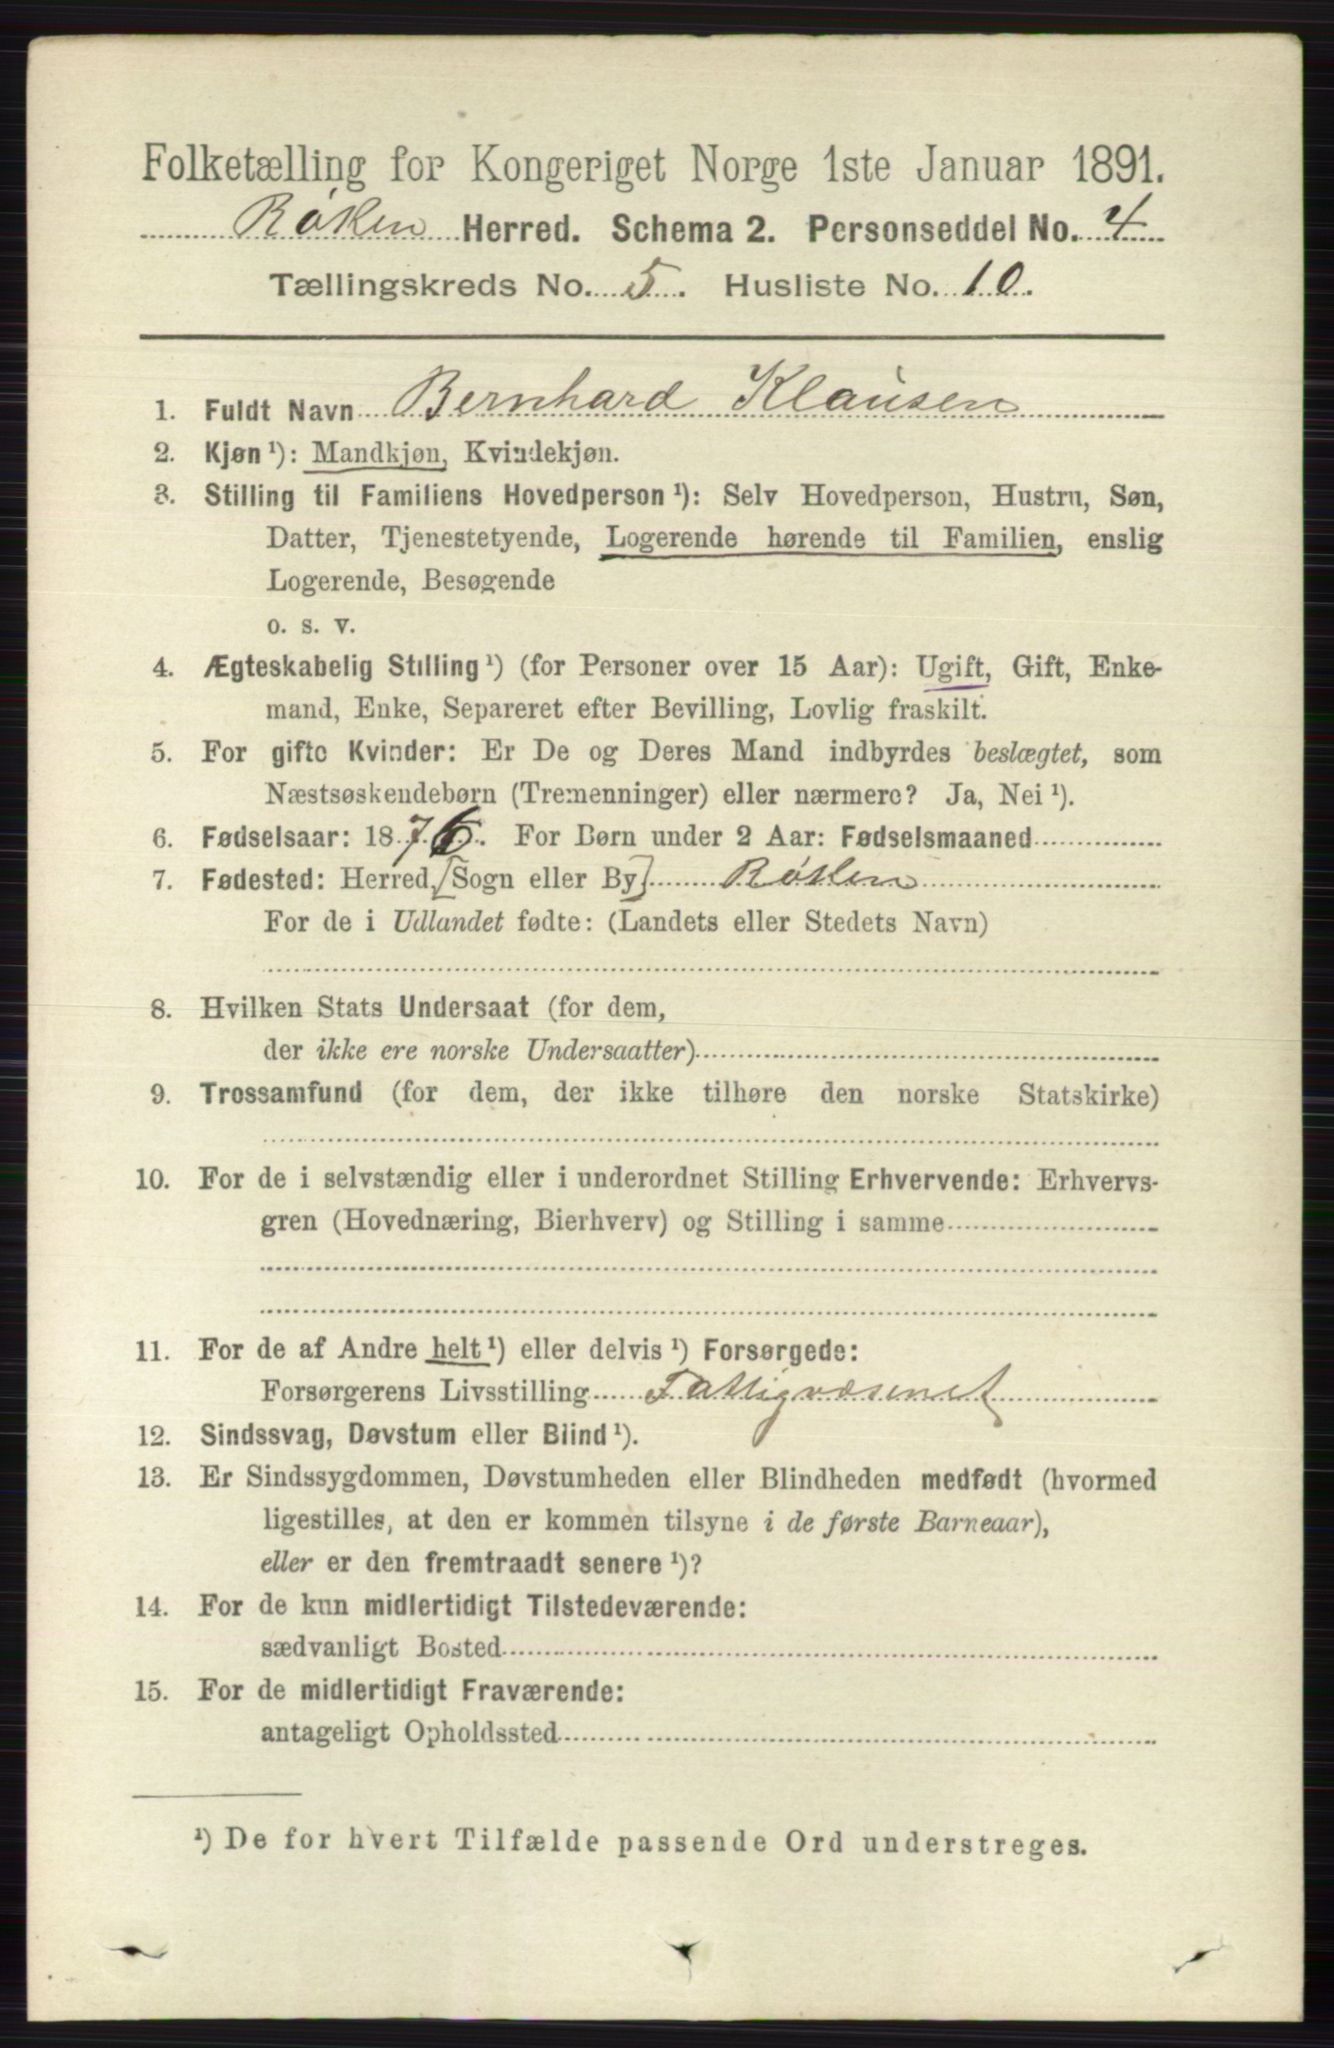 Folketælling for Kongeriget Norge 1ste Januar 1891.
Røken Herred. Schema 2. Personseddel No. 4
Tællingskreds No. 5. Husliste No. 10.
1. Fuldt Navn Bernhard Klausen
2. Kjøn ¹): Mandkjøn, Kvindekjøn.
3. Stilling til Familiens Hovedperson ¹): Selv Hovedperson, Hustru, Søn,
Datter, Tjenestetyende, Logerende hørende til Familien, enslig
Logerende, Besøgende
o. s. v.
4. Ægteskabelig Stilling ¹) (for Personer over 15 Aar): Ugift, Gift, Enke-
mand, Enke, Separeret efter Bevilling, Lovlig fraskilt.
5. For gifte Kvinder: Er De og Deres Mand indbyrdes beslægtet, som
Næstsøskendebørn (Tremenninger) eller nærmere? Ja, Nei ¹).
6. Fødselsaar: 1876. For Børn under 2 Aar: Fødselsmaaned
7. Fødested: Herred, [Sogn eller By] Røken
For de i Udlandet fødte: (Landets eller Stedets Navn)
8. Hvilken Stats Undersaat (for dem,
der ikke ere norske Undersaatter)
9. Trossamfund (for dem, der ikke tilhøre den norske Statskirke)
10. For de i selvstændig eller i underordnet Stilling Erhvervende: Erhvervs-
gren (Hovednæring, Bierhverv) og Stilling i samme
11. For de af Andre helt ¹) eller delvis ¹) Forsørgede:
Forsørgerens Livsstilling Fattigvæsenet
12. Sindssvag, Døvstum eller Blind ¹).
13. Er Sindssygdommen, Døvstumheden eller Blindheden medfødt (hvormed
ligestilles, at den er kommen tilsyne i de første Barneaar),
eller er den fremtraadt senere ¹)?
14. For de kun midlertidigt Tilstedeværende:
sædvanligt Bosted
15. For de midlertidigt Fraværende:
antageligt Opholdssted
¹) De for hvert Tilfælde passende Ord understreges.